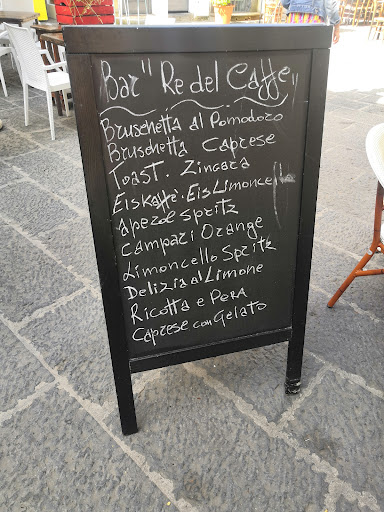 Bar "Re del Caffe"
Bruschetta al Pomodoro
Bruschetta Caprese
Toast. Zingara
Eiskaffè. Eis Limoncello
Aperol Spritz
Campari Orange
Limoncello Spritz
Delizia al Limone
Ricotta e Pera
Caprese con Gelato